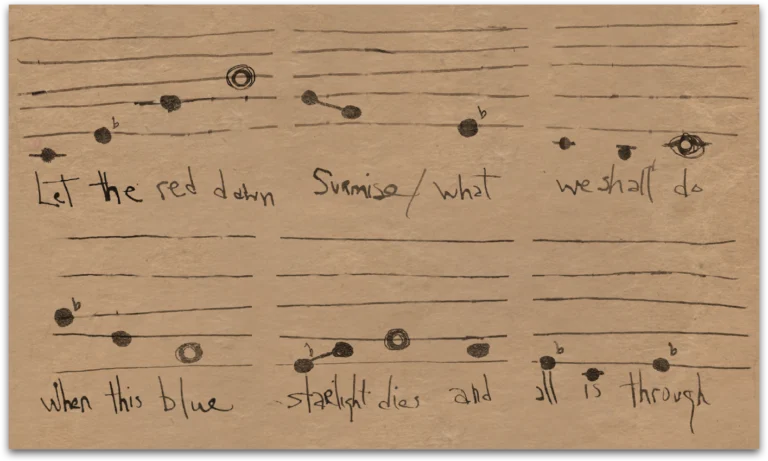 Let the red dawn Surmise/what we shall do
when this blue starlight dies and all is through